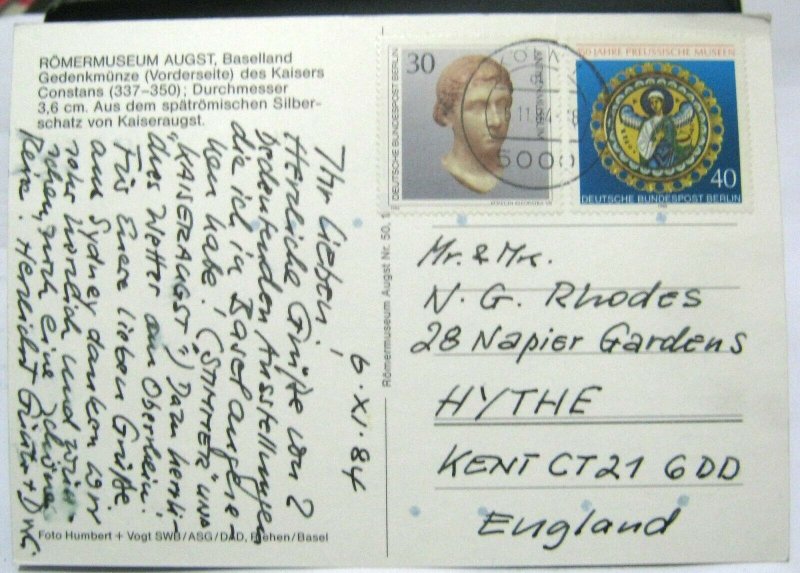 RÖMERMUSEUM AUGST, Baselland
Gedenkmünze (Vorderseite) des Kaisers
Constans (337–350); Durchmesser
3,6 cm. Aus dem spätrömischen Silber-
schatz von Kaiseraugst.
6.XI.84
Ihr Lieben,
Herzliche Grüße von 2
bedeutenden Ausstellungen
die ich in Basel angese-
hen habe! („STIMMER" UND
„KAISERAUGST") Dazu herrli-
ches Wetter am Oberrhein!
Für Euere lieben Grüße
aus Sydney danken wir
sehr herzlich und wün-
schen Euch eine schöne
Reise. Herzlichst
Foto Humbert + Vogt SWB/ASG/DAD, Riehen/Basel
Römermuseum Augst Nr. 50, 1
30
DEUTSCHE BUNDESPOST BERLIN
ANTIKENMUSEUM
5000
PREUSSISCHE MUSEEN
40
DEUTSCHE BUNDESPOST BERLIN
Mr. & Mrs.
N. G. Rhodes
28 Napier Gardens
HYTHE
KENT CT21 6DD
England